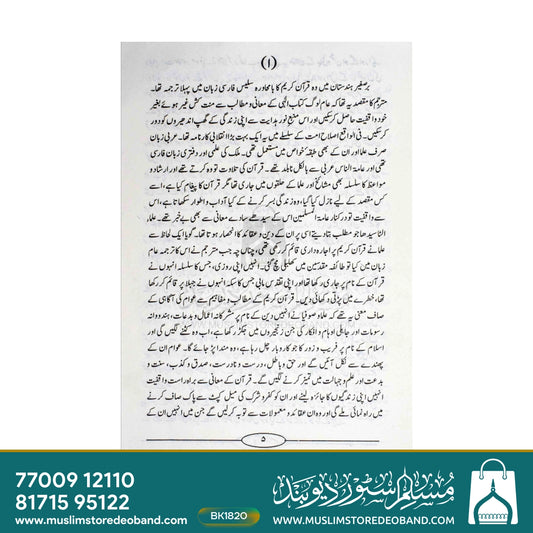 (۱)
برصغیر ہندستان میں وہ قرآن کریم کا بامحاورہ سلیس فارسی زبان میں پہلا ترجمہ تھا۔
مترجم کا مقصد یہ تھا کہ عام لوگ کتاب الٰہی کے معانی و مطالب سے منت کش غیر ہوئے بغیر
خود واقفیت حاصل کرسکیں اور اس منبع نور ہدایت سے اپنی زندگی کے گھپ اندھیروں کو دور
کرسکیں۔ فی الواقع اصلاح امت کے سلسلے میں یہ ایک بہت بڑا انقلابی کارنامہ تھا۔ عربی زبان
صرف علما اور ان کے بھی طبقۂ خواص میں مستعمل تھی۔ ملک کی علمی اور دفتری زبان فارسی
تھی اور عامۃ الناس عربی سے بالکل نابلد تھے۔ قرآن کی تلاوت تو وہ کرتے تھے اور ارشاد و
مواعظ کا سلسلہ بھی مشائخ اور علما کے حلقوں میں جاری تھا مگر قرآن کا پیغام کیا ہے، اسے
کس مقصد کے لیے نازل کیا گیا، وہ زندگی بسر کرنے کے کیا آداب و اطوار سکھاتا ہے، اس
سے واقفیت تو درکنار عامۃ المسلمین اس کے سیدھے سادے معانی سے بھی بے خبر تھے۔ علما
الٹا سیدھا جو مطلب بتا دیتے اسی پر ان کے دین و عقائد کا انحصار ہوتا تھا۔ گویا ایک لحاظ سے
علما نے قرآن کریم پر اجارہ داری قائم کر رکھی تھی، چناں چہ جب مترجم نے اس کا ترجمہ عام
زبان میں کیا تو طائفہ مقدسین میں کھلبلی مچ گئی۔ انہیں اپنی روزی، جس کا سلسلہ انہوں نے
قرآن کے نام پر جاری رکھا تھا اور اپنی تقدس مآبی جس کا سکہ انہوں نے جہلا پر قائم کر رکھا
تھا، خطرے میں پڑتی دکھائی دیں۔ قرآن کریم کے مطالب و مفاہیم سے عوام کی آگاہی کے
صاف معنی یہ تھے کہ علما و صوفیا نے انہیں دین کے نام پر مشرکانہ اعمال و بدعات، ہندوانہ
رسومات اور جاہلی اوہام و افکار کی جن زنجیروں میں جکڑ رکھا ہے، اب وہ کٹنے لگیں گی اور
اسلام کے نام پر فریب و زور کا جو کاروبار چل رہا ہے، وہ مندا پڑ جائے گا۔ عوام ان کے
پھندے سے نکل آئیں گے اور حق و باطل، درست و نادرست، صدق و کذب، سنت و
بدعت اور علم و جہالت میں تمیز کرنے لگیں گے۔ قرآن کے معانی سے براہ راست واقفیت
انہیں اپنی زندگیوں کا جائزہ لینے اور ان کو کفر و شرک کی میل کچیل سے پاک صاف کرنے
میں راہ نمائی ملے گی اور وہ ان عقائد و معمولات سے توبہ کرلیں گے جن میں انہیں ان کے
۵
77009 12110
81715 95122
www.muslimstoredeoband.com
BK1820
مسلم اسٹور دیوبند
WWW.MUSLIMSTOREDEOBAND.COM